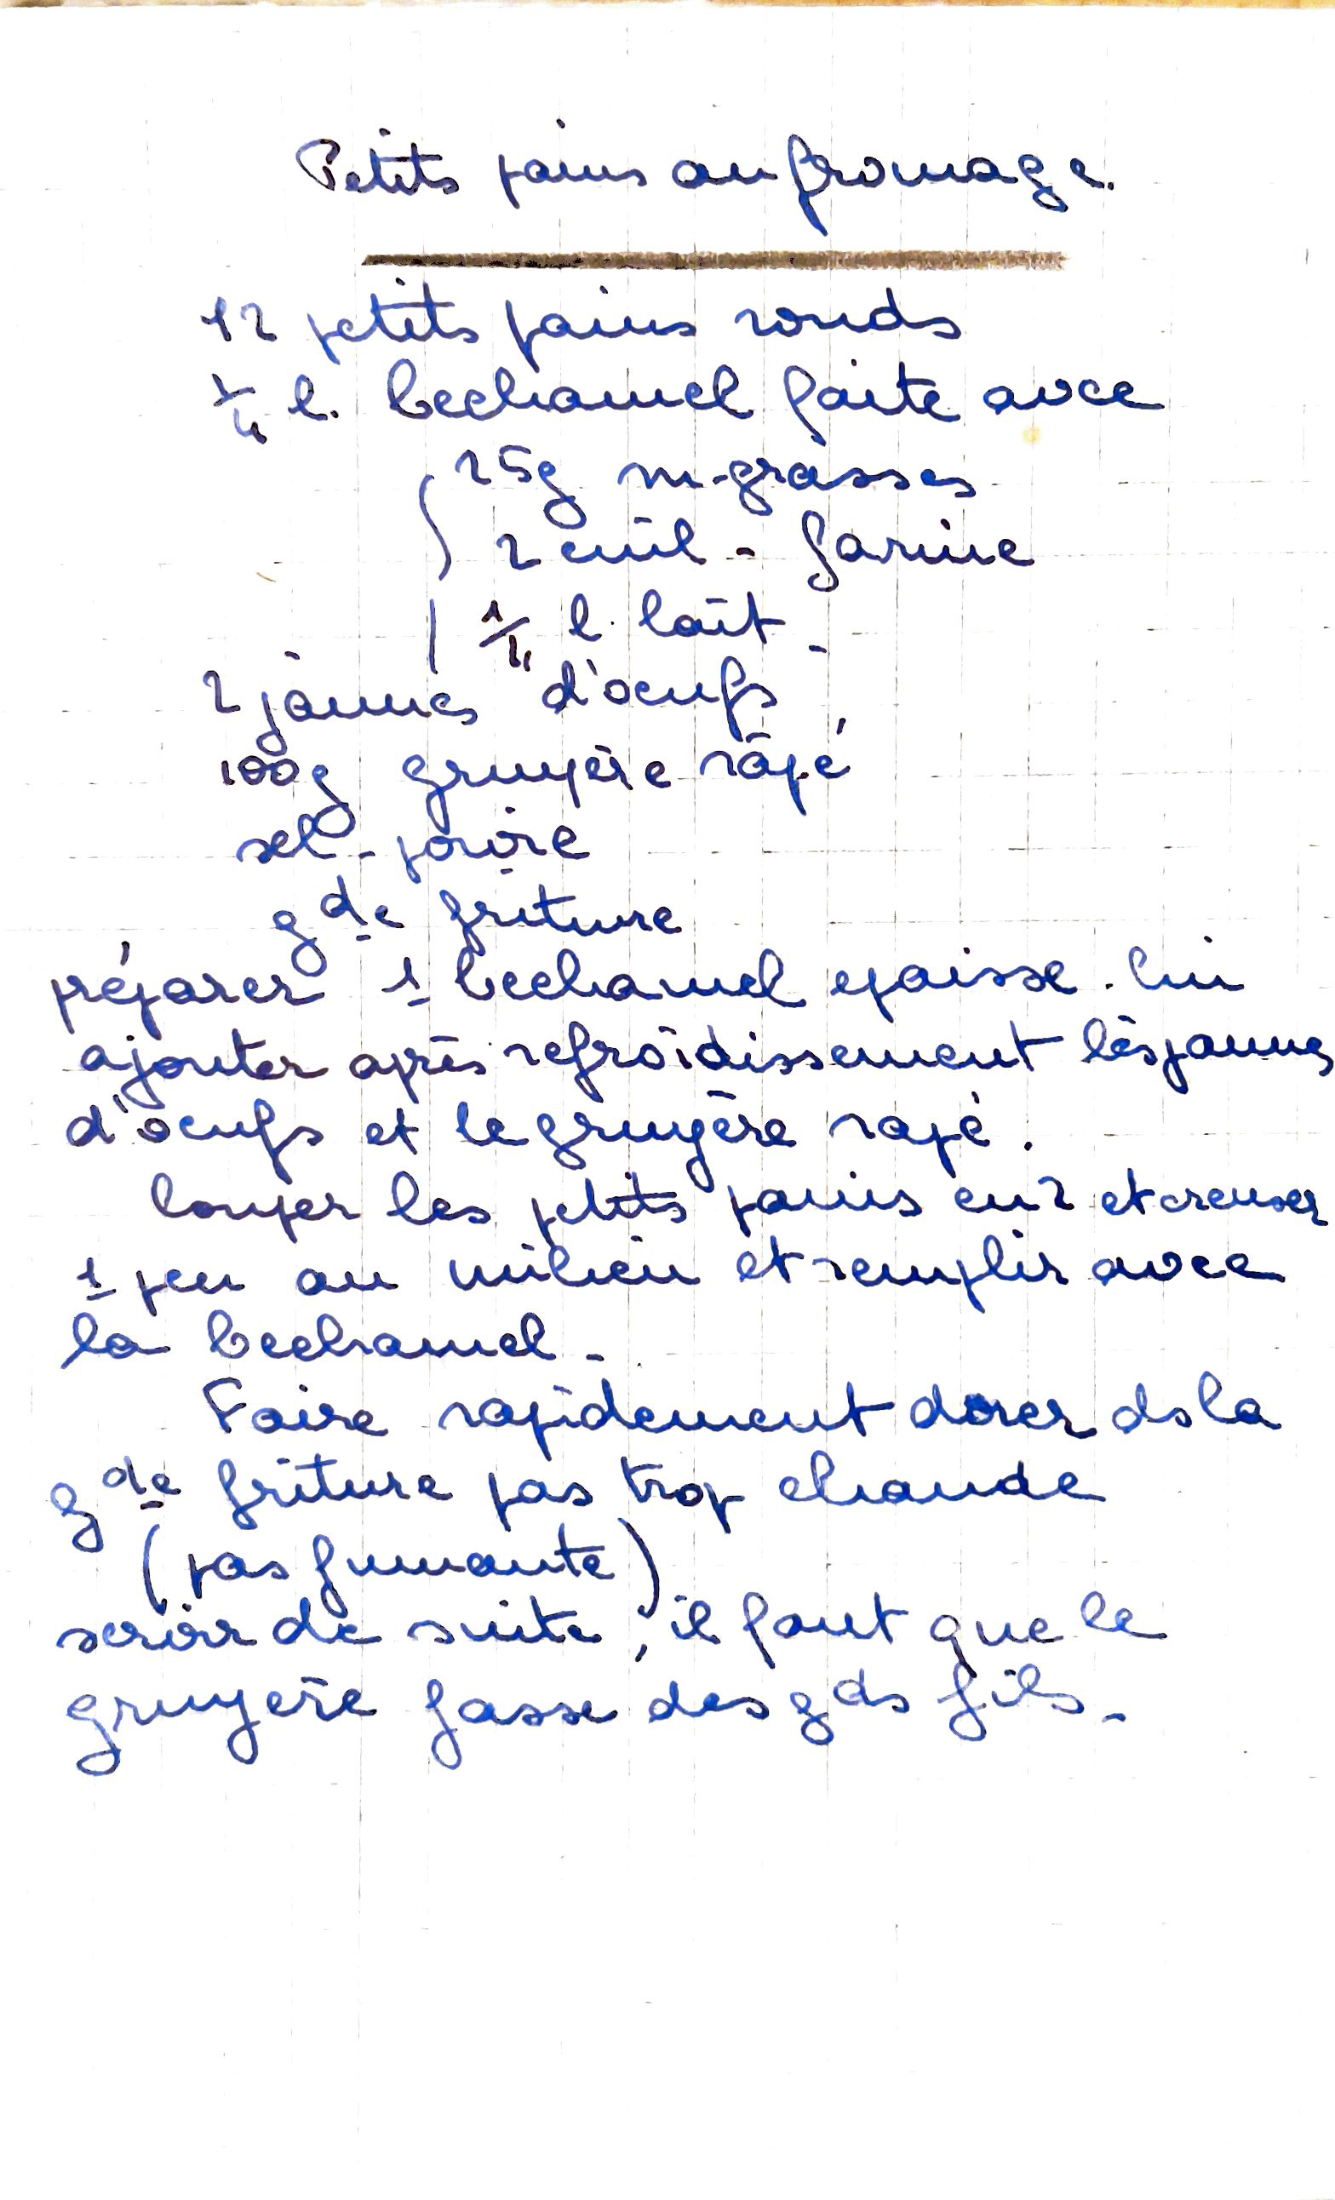 Petits pains au fromage.
12 petits pains ronds
1/4 l. bechamel faite avec
25g m. grasses
2 cuil - farine
1/4 l. lait -
2 jaunes d'oeufs
100g gruyère râpé
sel - poivre
gde friture
préparer 1 bechamel epaisse. lui
ajouter après refroidissement les jaunes
d'oeufs et le gruyère rapé.
Couper les petits pains en 2 et creuser
1 peu au milieu et remplir avec
la bechamel -
Faire rapidement dorer ds la
gde friture pas trop chaude
(pas fumante)
servir de suite, il faut que le
gruyère fasse des gds fils -